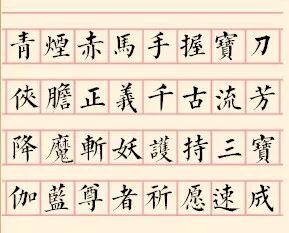 青煙赤馬手握寶刀
俠膽正義千古流芳
降魔斬妖護持三寶
伽藍尊者祈愿速成